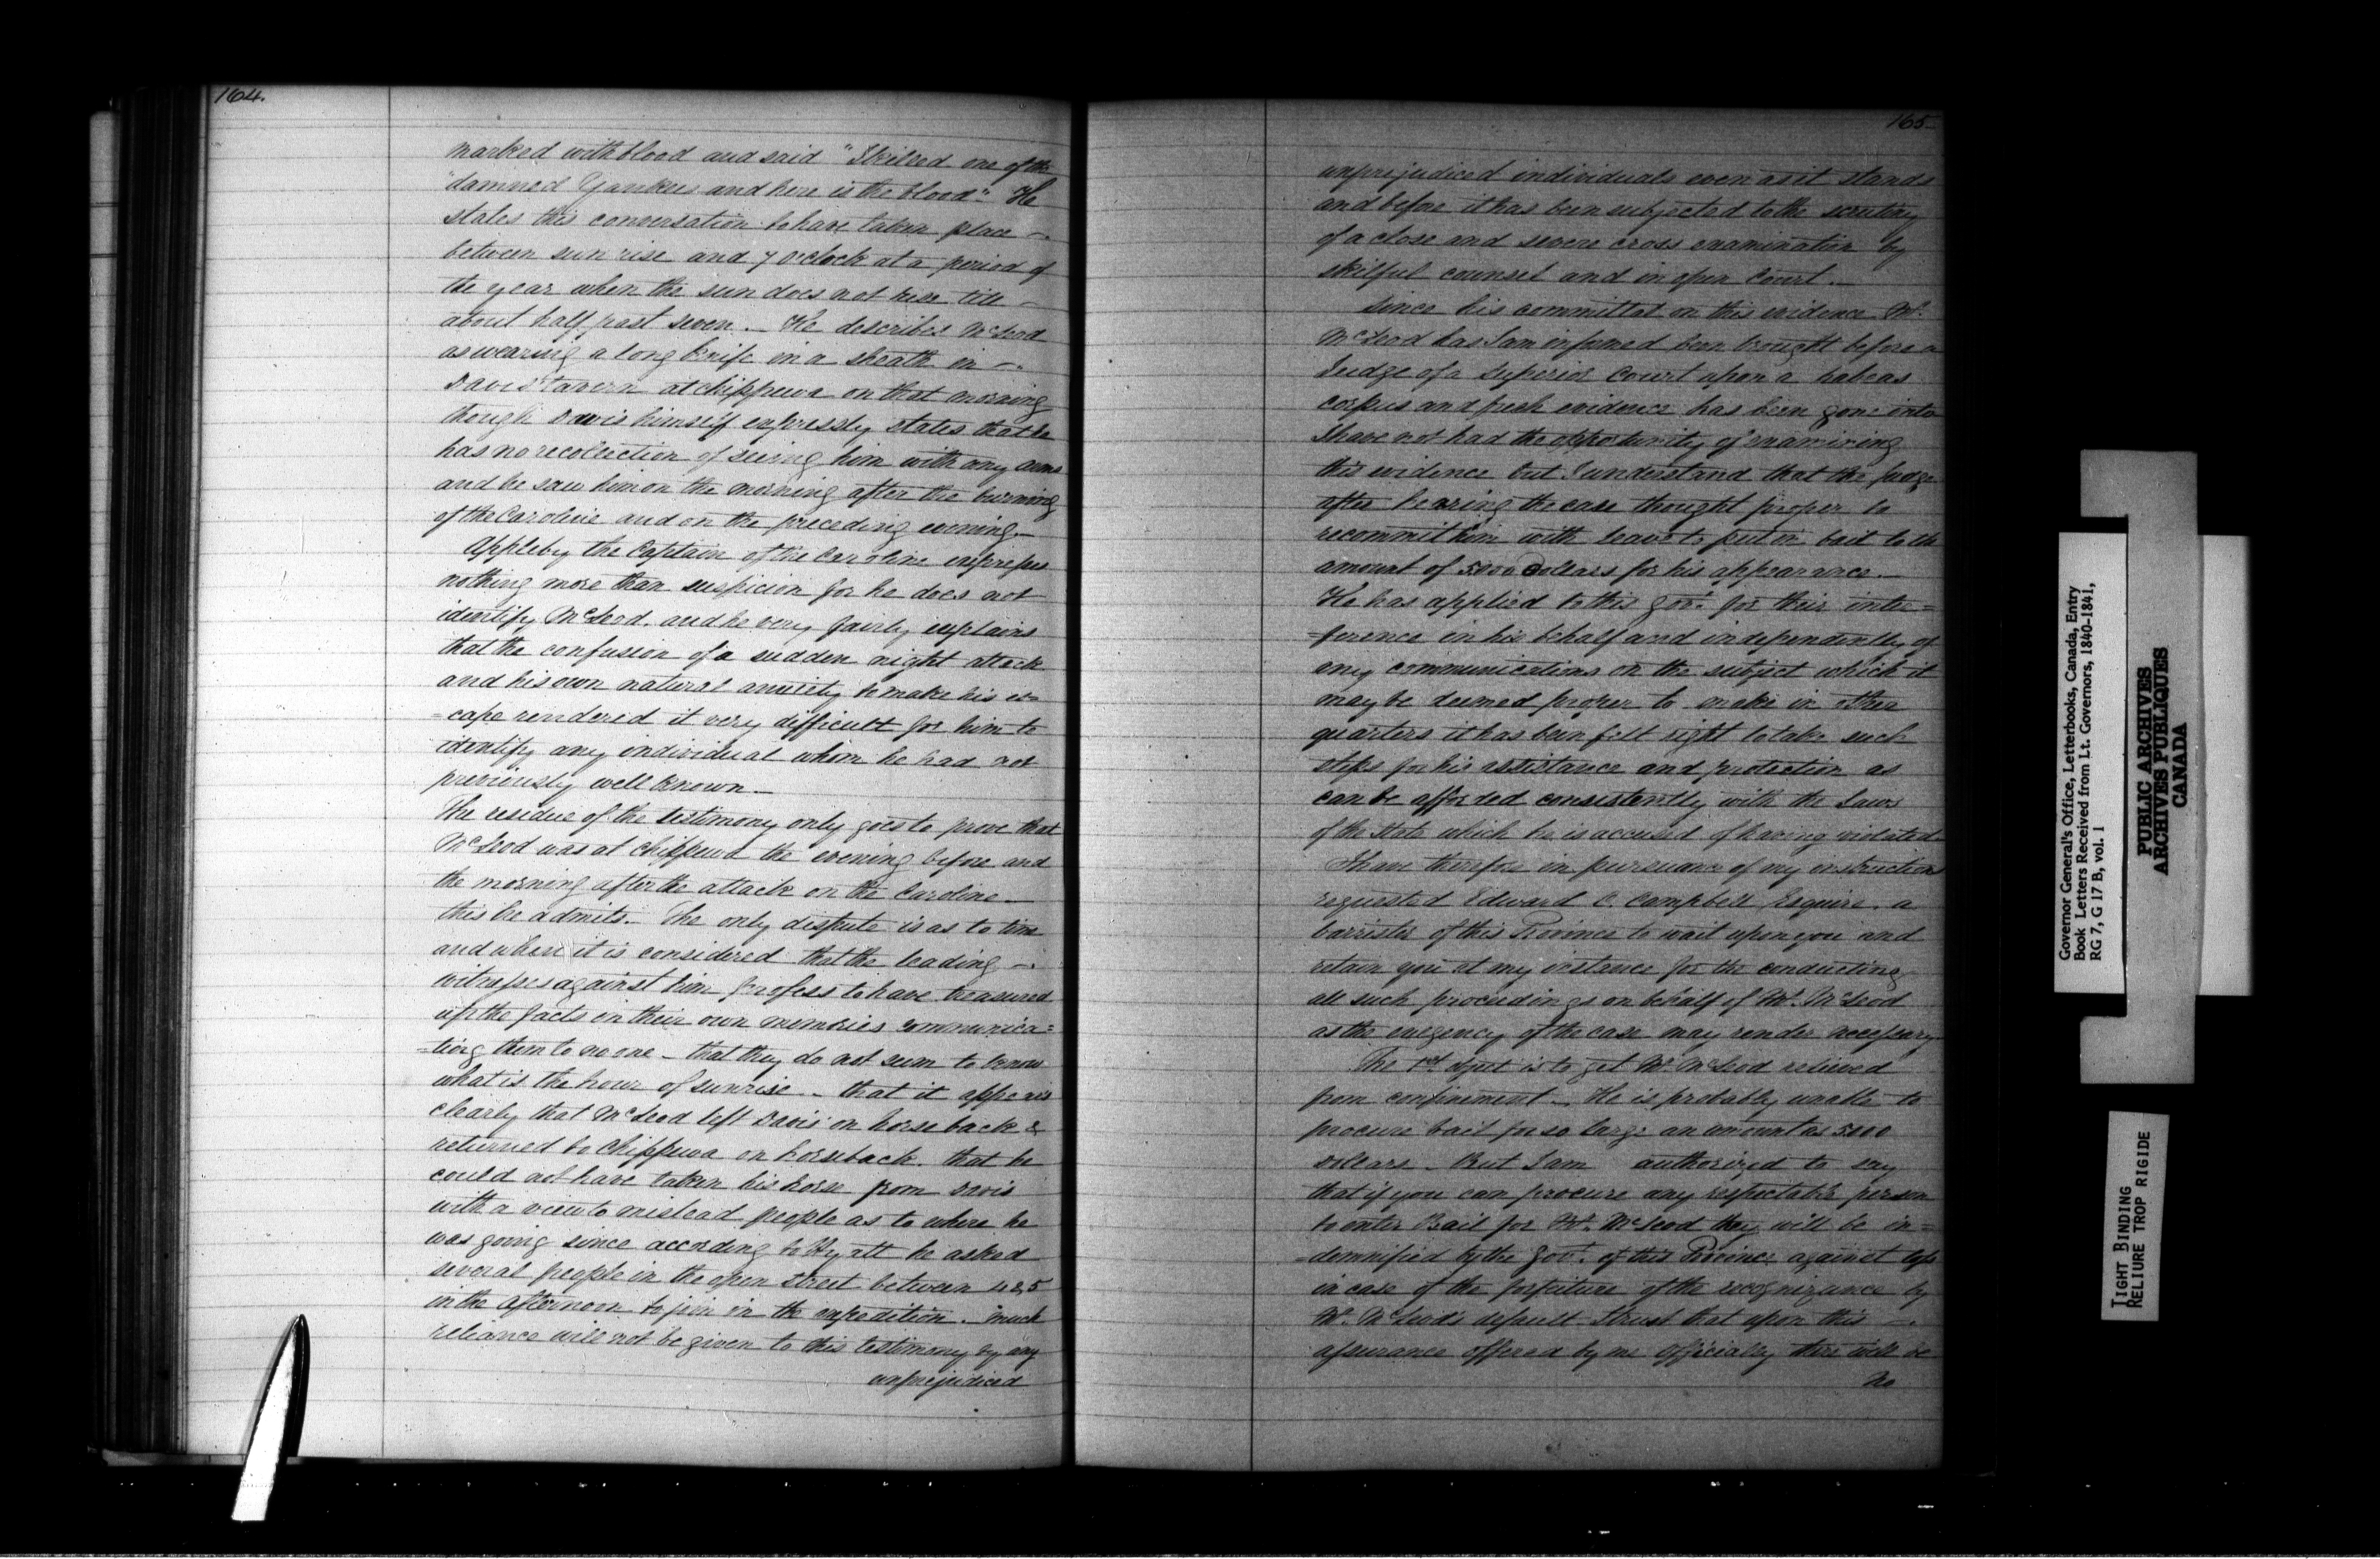 164.
marked with blood and said "I killed one of the
"damned Yankees and here is the blood." He
states this conversation to have taken place —
between sun rise and 7 o'clock at a period of
the year when the sun does not rise till —
about half past seven. — He describes McLeod
as wearing a long knife in a sheath in —
Davis' tavern at Chippewa on that morning
though Davis himself expressly states that he
has no recollection of seeing him with any arms
and he saw him on the morning after the burning
of the Caroline and on the preceding evening. —
Appleby the Captain of the Caroline expresses
nothing more than suspicion for he does not
identify McLeod. and he very fairly explains
that the confusion of a sudden night attack
and his own natural anxiety to make his es=
=cape rendered it very difficult for him to
identify any individual whom he had not
previously well known —
The residue of the testimony only goes to prove that
McLeod was at Chippewa the evening before and
the morning after the attack on the Caroline —
this he admits. The only dispute is as to time
and when it is considered that the leading —
witnesses against him profess to have treasured
up the facts in their own memories communica=
=ting them to no one — that they do not seem to know
what is the hour of sunrise — that it appears
clearly that McLeod left Davis' on horse back &
returned to Chippewa on horseback. that he
could not have taken his horse from Davis
with a view to mislead people as to where he
was going since according to Hyatt he asked
several people in the open street between 4 & 5
in the afternoon to join in the expedition. much
reliance will not be given to this testimony by any
unprejudiced
165
unprejudiced individuals even as it stands
and before it has been subjected to the scrutiny
of a close and severe cross examination by
skilful counsel and in open Court. —
Since his committal on this evidence Mr.
McLeod has I am informed been brought before a
Judge of a Superior Court upon a habeas
corpus and fresh evidence has been gone into
I have not had the opportunity of examining
this evidence but I understand that the Judge
after hearing the case thought proper to
recommit him with leave to put in bail to the
amount of 5000 Dollars for his appearance. —
He has applied to this Govt. for their inter=
=ference in his behalf and independently of
any communications on the subject which it
may be deemed proper to make in other
quarters it has been felt right to take such
steps for his assistance and protection as
can be afforded consistently with the Laws
of the State which he is accused of having violated.
I have therefore in pursuance of my instructions
requested Edward C. Campbell Esquire. a
barrister of this Province to wait upon you and
retain you at my instance for the conducting
all such proceedings on behalf of Mr. McLeod
as the exigency of the case may render necessary
The 1st object is to get Mr. McLeod relieved
from confinement — He is probably unable to
procure bail for so large an amount as 5000
Dollars — But I am authorized to say
that if you can procure any respectable person
to enter Bail for Mr. McLeod they will be in=
=demnified by the Govt. of this Province against loss
in case of the forfeiture of the recognizance by
Mr. McLeod's default I trust that upon this —
assurance offered by me officially there will be
no
Governor General's Office, Letterbooks, Canada, Entry
Book Letters Received from Lt. Governors, 1840-1841,
RG 7, G 17 B, vol. 1
PUBLIC ARCHIVES
ARCHIVES PUBLIQUES
CANADA
TIGHT BINDING
RELIURE TROP RIGIDE